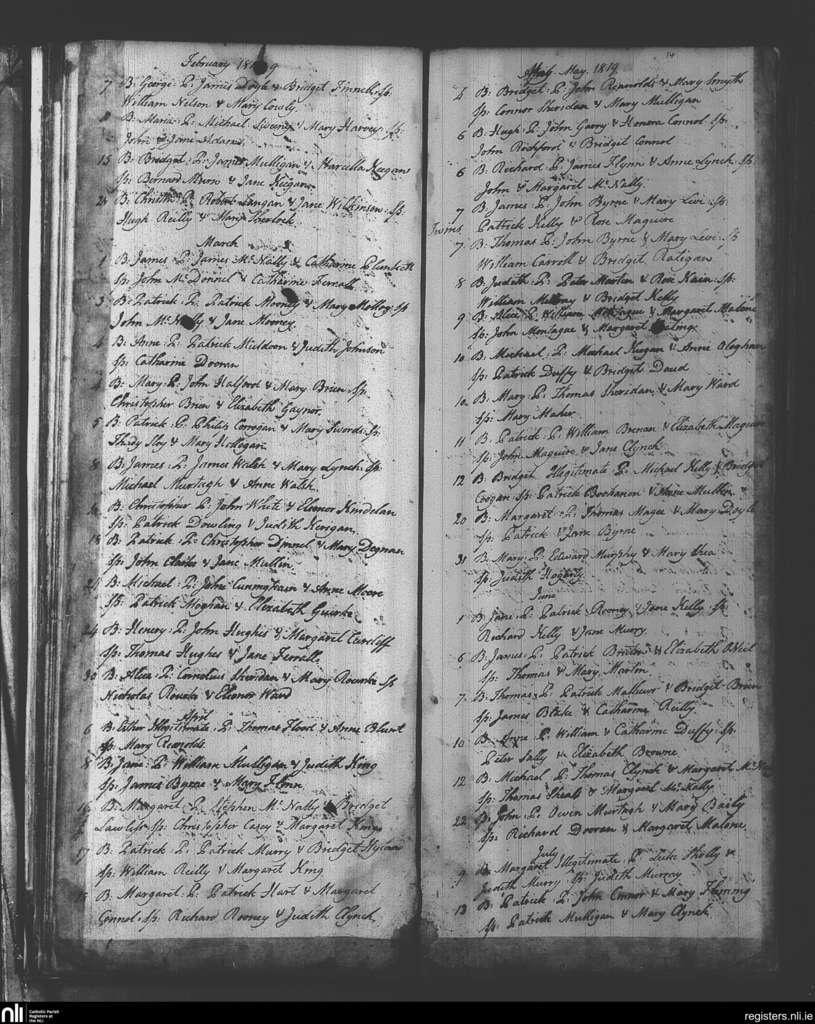 February 1819
7 B: George P: James Doyle & Bridget Finnell Sp:
William Nelson & Mary Cowly
B: Maria P: Michael Sweeny & Mary Harvey Sp:
John & Jane Adams
15 B: Bridget P: James Mulligan & Marcella Keegan
Sp: Bernard & Jane Keegan
B: P: Robert Langan & Jane Wilkinson Sp:
Hugh Reilly & Mary Sherlock
March
1 B: James P: James McNally & Catharine Plunkett
Sp: John McDonnel & Catharine Ferrall
3 B: Patrick P: Patrick Mooney & Mary Molloy Sp
John McNally & Jane Mooney
4 B: Anne P: Patrick Muldoon & Judith Johnson
Sp: Catharine Dooren
4 B: Mary P: John Halford & Mary Brien Sp:
Christopher Brien & Elizabeth Gaynor
5 B: Patrick P: Philip Corrogan & Mary Swords Sp:
& Mary Hologan
8 B: James P: James Walsh & Mary Lynch Sp:
Michael Murtagh & Anne Walsh
B: Christopher P: John White & Eleonor Kindelan
Sp: Patrick Dowling & Judith Kerigan
18 B: Patrick P: Christopher & Mary Degnan
Sp: John & Jane Mullin
B: Michael P: John Cunningham & Anne Moore
Sp: Patrick Moghan & Elizabeth
24 B: Henery P: John Hughes & Margaret
Sp: Thomas Hughes & Jane Ferrall
30 B: Alica P: Cornelius Sheridan & Mary Rourke Sp
Nicholas Rourke & Eleonor Ward
April
6 B: Esther Illegitimate P: Thomas Flood & Anne Blunt
Sp: Mary Reynolds
8 B: Jane P: William Mulligan & Judith King
Sp: James Byrne & Mary Flinn
16 B: Margaret P: Stephen McNally & Bridget
Lawless Sp: Christopher Casey & Margaret King
17 B: Patrick P: Patrick Murry & Bridget
Sp: William Reilly & Margaret King
B: Margaret P: Patrick Hart & Margaret
Connol Sp: Richard Rooney & Judith Clynch
14
May 1819
B: Bridget P: John Reynolds & Mary Smyth
Sp: Connor Sheridan & Mary Mulligan
6 B: Hugh P: John Garry & Honora Connol Sp:
John Rochford & Bridget Connol
6 B: Richard P: James Flynn & Anne Lynch Sp
John & Margaret McNally
7 B: James P: John Byrne & Mary Sp:
Twins Patrick Kelly & Rose Maguire
7 B: Thomas P: John Byrne & Mary Sp
William Carroll & Bridget Ratigan
8 B: Judith P: Peter Martin & Rose Kain Sp:
William & Bridget Kelly
9 B: Alice P: William Montague & Margaret Malone
Sp: John Montague & Margaret
10 B: Michael P: Michael Keegan & Anne
Sp: Patrick Duffy & Bridget Daud
10 B: Mary P: Thomas Sheridan & Mary Ward
Sp: Mary Maher
11 B: Patrick P: William Brenan & Elizabeth Maguire
Sp: John Maguire & Jane Clynch
12 B: Bridget Illegitimate P: Michael Kelly & Bridget
Coogan Sp: Patrick Bochanon & Mullen
20 B: Margaret P: Thomas Magee & Mary Doyle
Sp: Patrick & Jane Byrne
31 B: Mary P: Edward Murphy & Mary Shea
Sp: Judith Hogarty
June
1 B: Jane P: Patrick Rooney & Jane Kelly Sp
Richard Kelly & Jane Murry
6 B: James P: Patrick & Elizabeth
Sp: Thomas & Mary Martin
7 B: Thomas P: Patrick Mathews & Bridget Brien
Sp: James Blake & Catharine Reilly
10 B: Anne P: William & Catharine Duffy Sp:
Peter Sally & Elizabeth Browne
12 B: Michael P: Thomas Clynch & Margaret
Sp: Thomas & Margaret McNally
22 B: John P: Owen Murtagh & Mary Baily
Sp: Richard Dooren & Margaret Malone
July
9 B: Margaret Illegitimate P: Luke &
Judith Murry Sp: Judith Murray
13 B: Patrick P: John Connor & Mary Fleming
Sp: Patrick Mulligan & Mary Clynch
nli
Catholic Parish
Registers at
the NLI
registers.nli.ie